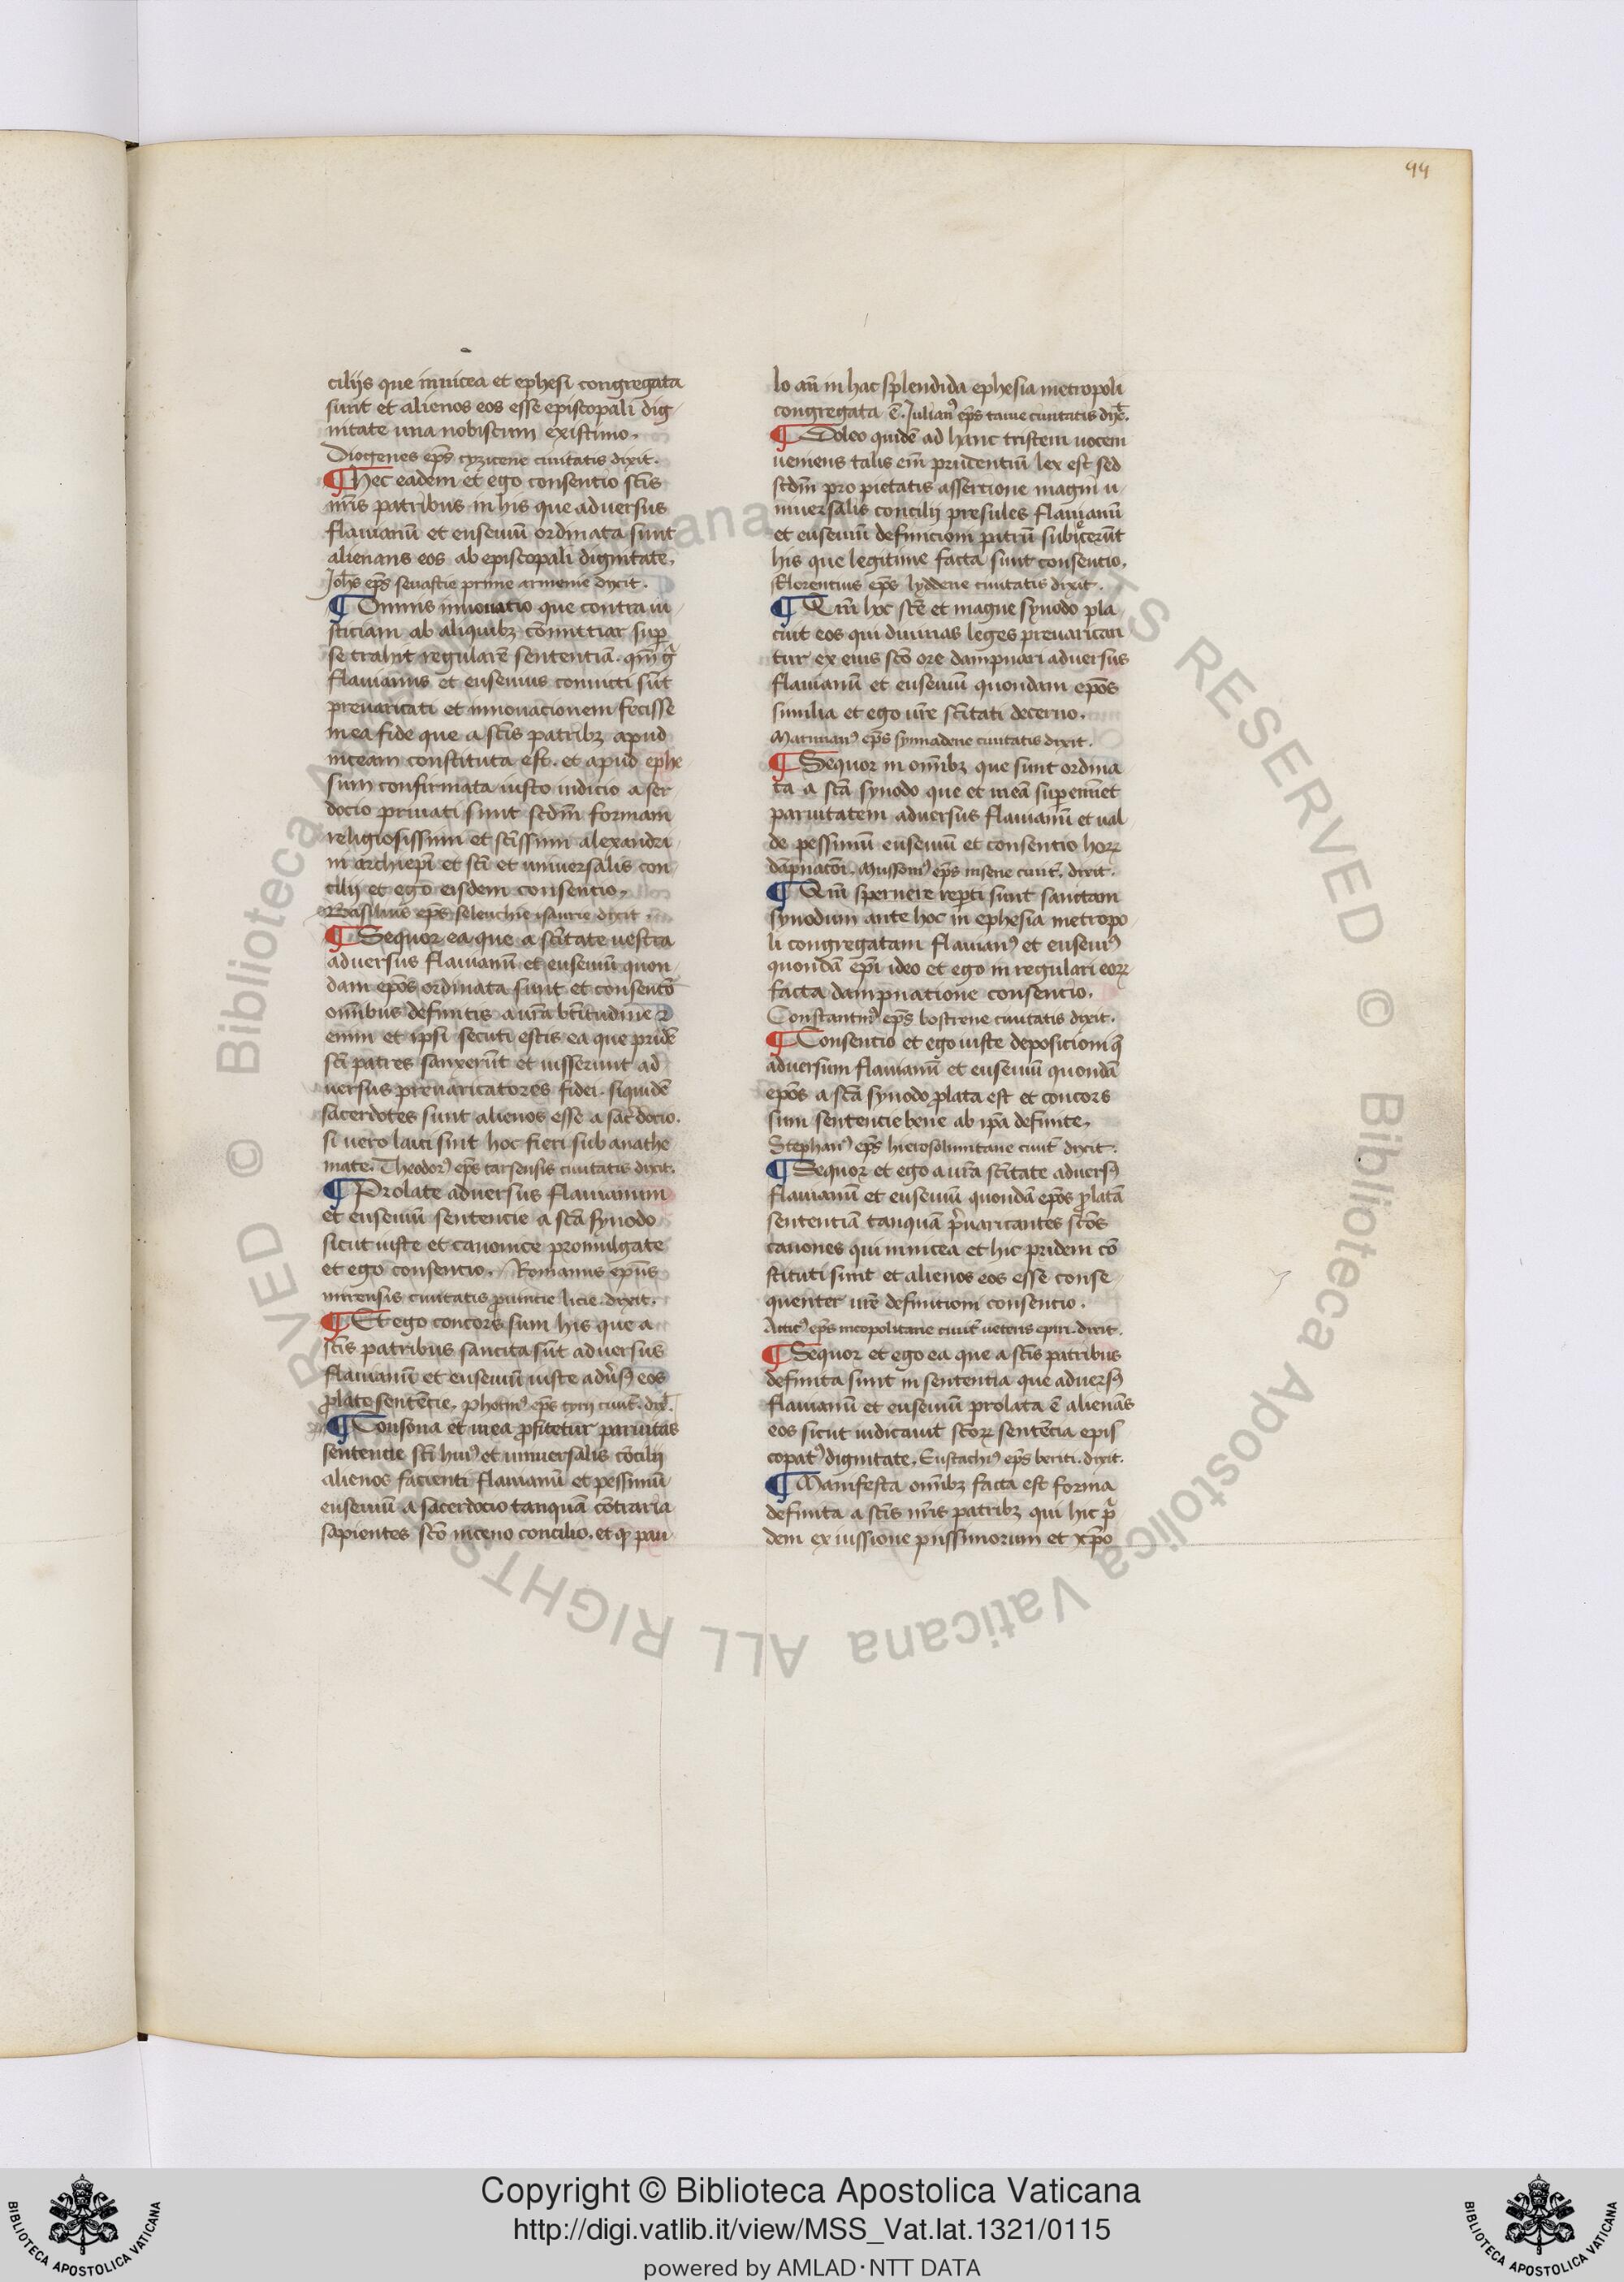 99
cilijs que in nicea et ephesi congregata
sunt et alienos eos esse episcopali dig
nitate una nobiscum existimo.
Diogenes ep̄s cyzicene ciuitatis dixit.
¶ Hec eadem et ego consentio sc̄is
nr̄is patribus in his que aduersus
flauianū et euseuiū ordinata sunt
alienans eos ab episcopali dignitate.
Joh̄s ep̄s seuastie prime armenie dixit.
¶ Omnis innouatio que contra iu
sticiam ab aliquibꝫ cōmittitar sup̱
se trahit regularē sententiā. qm̄ gͥ
flauianus et euseuius conuicti sūt
preuaricati et innouacionem fecisse
in ea fide que a sc̄is patribꝫ apud
niceam constituta est. et apud ephe
sum confirmata iusto iudicio a ser
docio priuati sunt sc̄dm̄ formam
religiosissimi et sc̄issimi alexandri
ni archiep̄i et sc̄i et uniuersalis con
cilij et ego eisdem consencio.
Basilius ep̄s seleuchie isaurie dixit.
¶ Sequor ea que a sc̄itate uestra
aduersus flauianū et euseuiū quon
dam ep̄os ordinata sunt et consencō
om̄ibus definitis a ur̄a b̄titudine
enim et ipsi secuti estis ea que pridē
sc̄i patres sanxerūt et iusserunt ad
uersus preuaricatores fidei. siquidē
sacerdotes sunt alienos esse a sac̓docio.
si uero laici sint hoc fieri sub anathe
mate. Theodorꝰ ep̄s tarsensis ciuitatis dixit.
¶ Prolate aduersus flauianum
et euseuiū sentencie a sc̄a synodo
sicut iuste et canonice promulgate
et ego consencio. Romanus ep̄us
mirensis ciuitatis ꝓuincie licie. dixit.
¶ Et ego concors sum his que a
sc̄is patribus sancita sūt aduersus
flauianū et euseuiū iuste adūsꝰ eos
ꝓlate sentēcie. Photinꝰ ep̄s tyrij ciuit̄. dix̄t.
¶ Consona et mea ꝓfitetur paruitas
sentencie sc̄i huiꝰ et uniuersalis cōcilij
alienos facienti flauianū et pessimū
euseuiū a sacerdocio tanquā cōtraria
sapientes sc̄o niceno concilio. et qꝫ pau
lo an̄ in hac splendida ephesia metropoli
congregata ē. Julianꝰ ep̄s tauie ciuitatis dix̄t.
¶ Doleo quidē ad hanc tristem uocem
ueniens talis em̄ prudentiū lex est sed
sc̄dm̄ pro pietatis assertione magni u
niuersalis concilij presules flauianū
et euseuiū definicioni patrū subiecerūt
his que legitime facta sunt consencio.
Florentius ep̄s lyddene ciuitatis dixit.
¶ Qm̄ hoc sc̄e et magne synodo pla
cuit eos qui diuinas leges preuarican
tur ex eius sc̄o ore dampnari aduersus
flauianū et euseuiū quondam ep̄os
similia et ego ur̄e sc̄itati decerno.
Marinianꝰ ep̄s synnadene ciuitatis dixit.
¶ Sequor in om̄ibꝫ que sunt ordina
ta a sc̄a synodo que et meā superem̄et
paruitatem aduersus flauianū et ual
de pessimū euseuiū et consentio horꝝ
dāpnacōi. Mussoniꝰ ep̄s nisene ciuit̄. dixit.
¶ Qm̄ spernere rep̱ti sunt sanctam
synodum ante hoc in ephesia metropo
li congregatam flauianꝰ et euseuiꝰ
quondā ep̄i ideo et ego in regulari eorꝝ
facta dampnatione consencio.
Constantinꝰ ep̄s bostrene ciuitatis dixit.
¶ Consentio et ego iuste deposicioni q̄
aduersum flauianū et euseuiū quondā
ep̄os a sc̄a synodo ꝓlata est et concors
sum sentencie bene ab ip̄a definite.
Stephanꝰ ep̄s hierosolimitane ciuit̄ dixit.
¶ Sequor et ego a ur̄a sc̄itate aduersꝰ
flauianū et euseuiū quondā ep̄os ꝓlatā
sententiā tanquā p̄uaricantes sc̄os
canones qui in nicea et hic pridem cō
stituti sunt et alienos eos esse conse
quenter ur̄e definitioni consencio.
Atticꝰ ep̄s nicopolitane ciuit̄ ueteris epiri. dixit.
¶ Sequor et ego ea que a sc̄is patribus
definita sunt in sententia que aduersꝰ
flauianū et euseuiū prolata ē alienās
eos sicut iudicauit sc̄orꝝ sentēcia epis
copatꝰ dignitate. Eustachiꝰ ep̄s beriti. dixit.
¶ Manifesta om̄ibꝫ facta est forma
definita a sc̄is nr̄is patribꝫ qui hic pͥ
dem ex iussione piissimorum et xp̄o
© Biblioteca Apostolica Vaticana ALL RIGHTS RESERVED © Biblioteca Apostolica Vaticana ALL RIGHTS RESERVED
BIBLIOTECA APOSTOLICA VATICANA
Copyright © Biblioteca Apostolica Vaticana
http://digi.vatlib.it/view/MSS_Vat.lat.1321/0115
powered by AMLAD·NTT DATA
BIBLIOTECA APOSTOLICA VATICANA